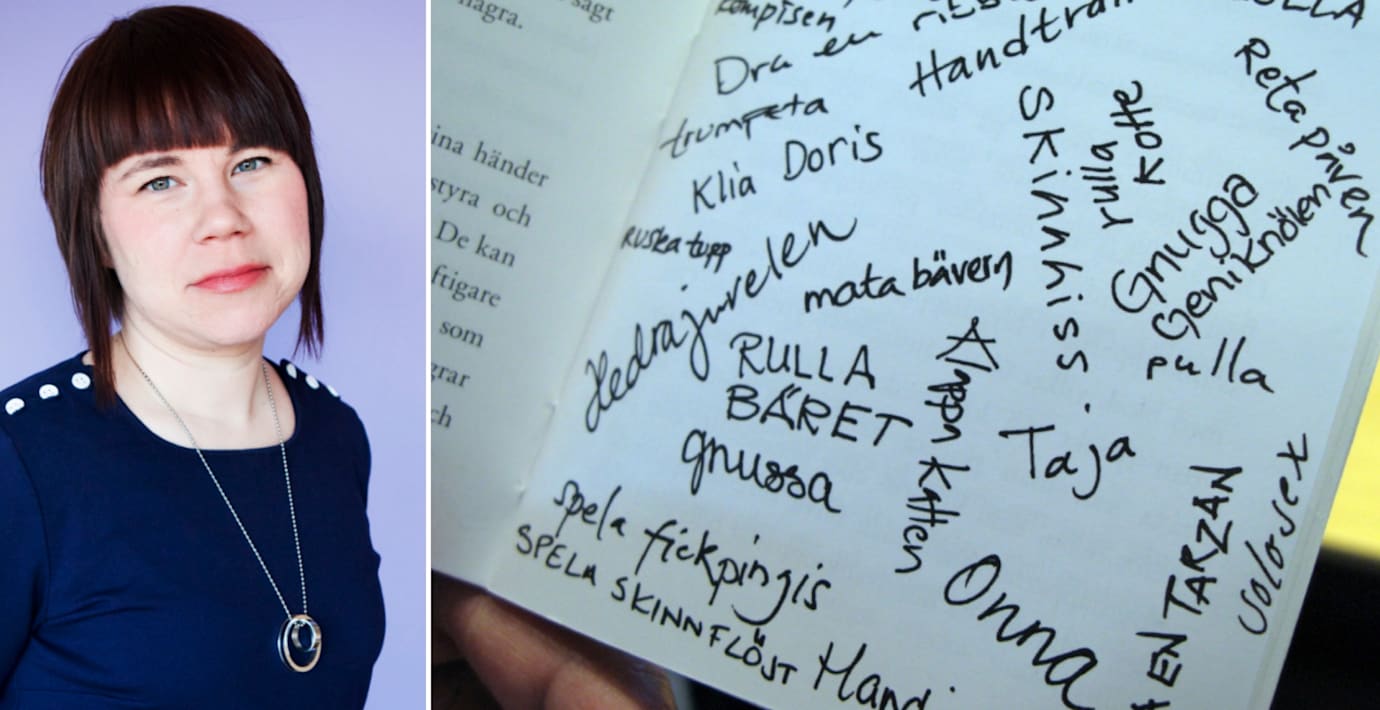 sagt
några.
ina händer
styra och
De kan
ftigare
som
grar
ch
kompisen
Dra en
trumpeta
Klia Doris
Ruska tupp
Hedra juvelen
mata bävern
RULLA
BÄRET
gnussa
spela fickpingis
SPELA SKINNFLÖJT
Skinnyiss
rulla
kotte
Reta påven
Gnugga
Geniknölen
pulla
Klappa Katten
Taja
Onna
EN TARZAN
solosex